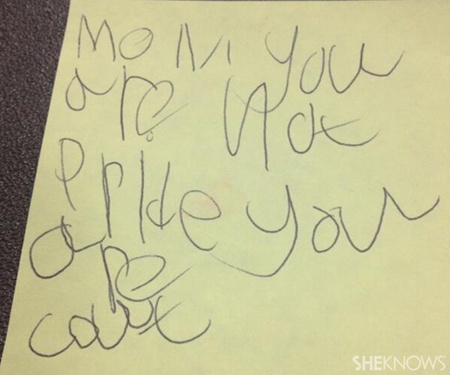 Mom you
are not
Pride you
are
cout
SHEKNOWS